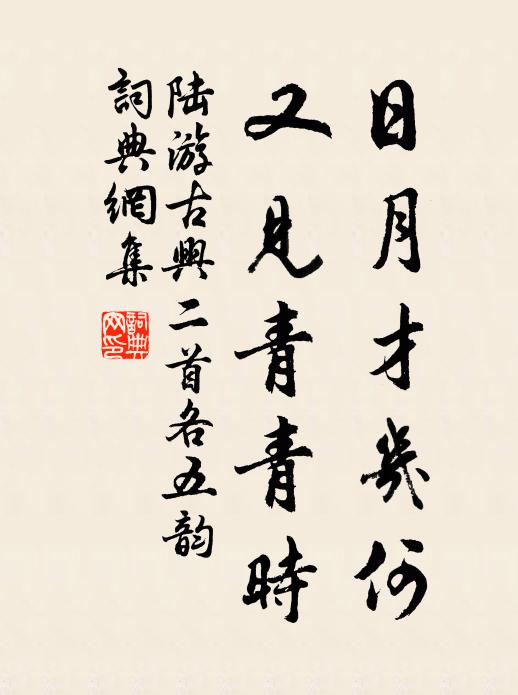 日月才幾何
又見青青時
陸游古興二首各五韵
詞典網集
詞典
网印